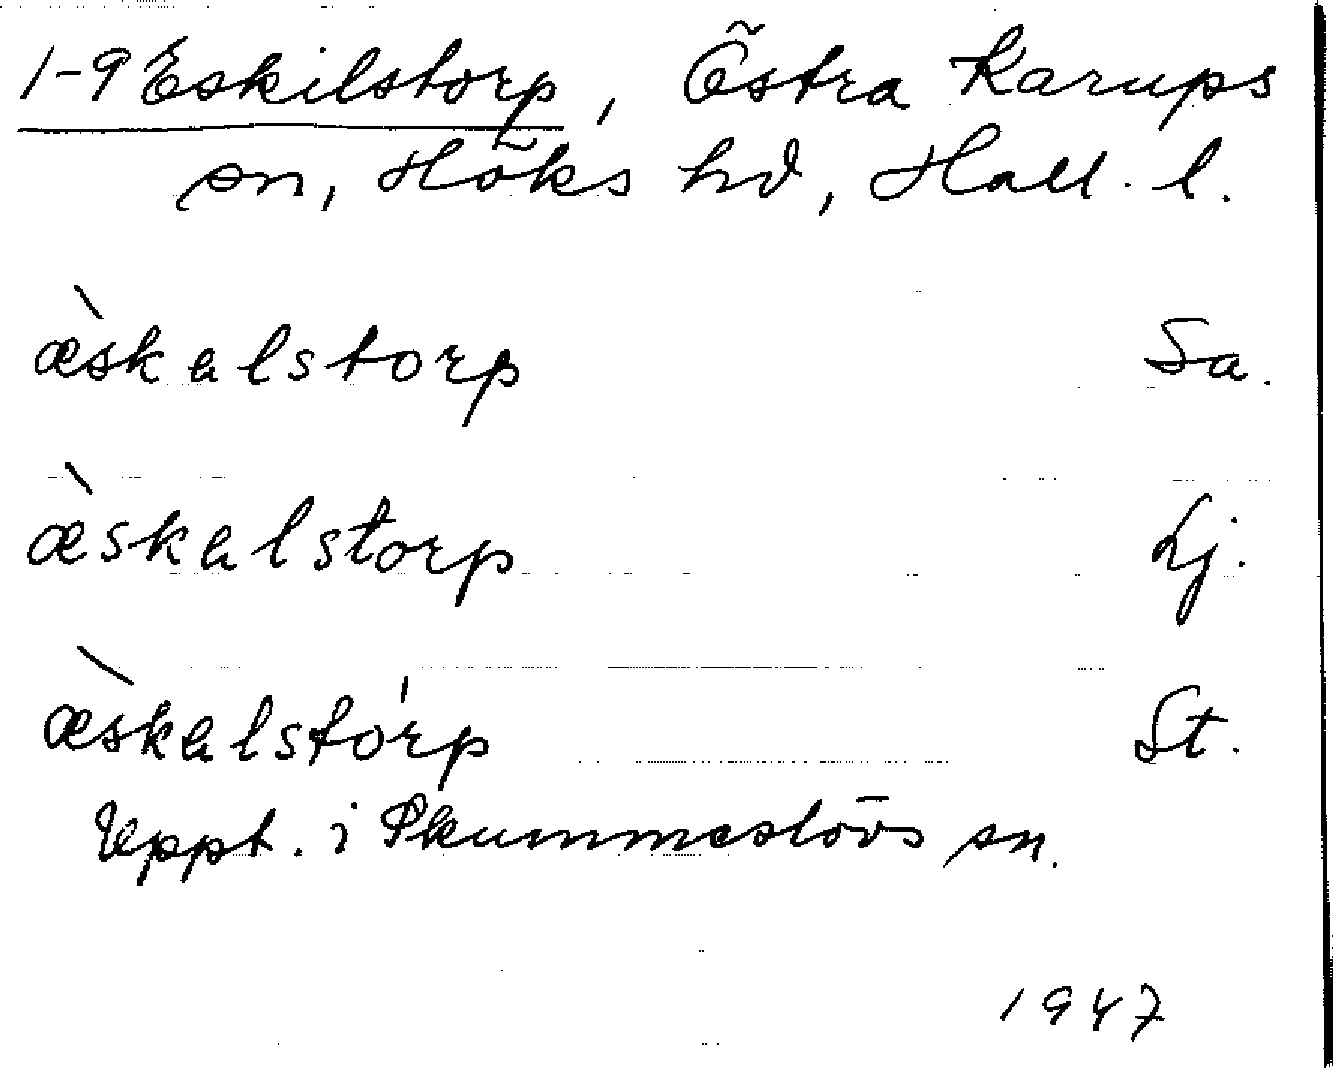 1-9 Eskilstorp, Östra Karups
sn, Höks hd, Hall. l.
æ̀skalstorp Sa.
æ̀skalstorp Lj.
æ̀skalstórp St.
Uppt. i Skummeslövs sn.
1947